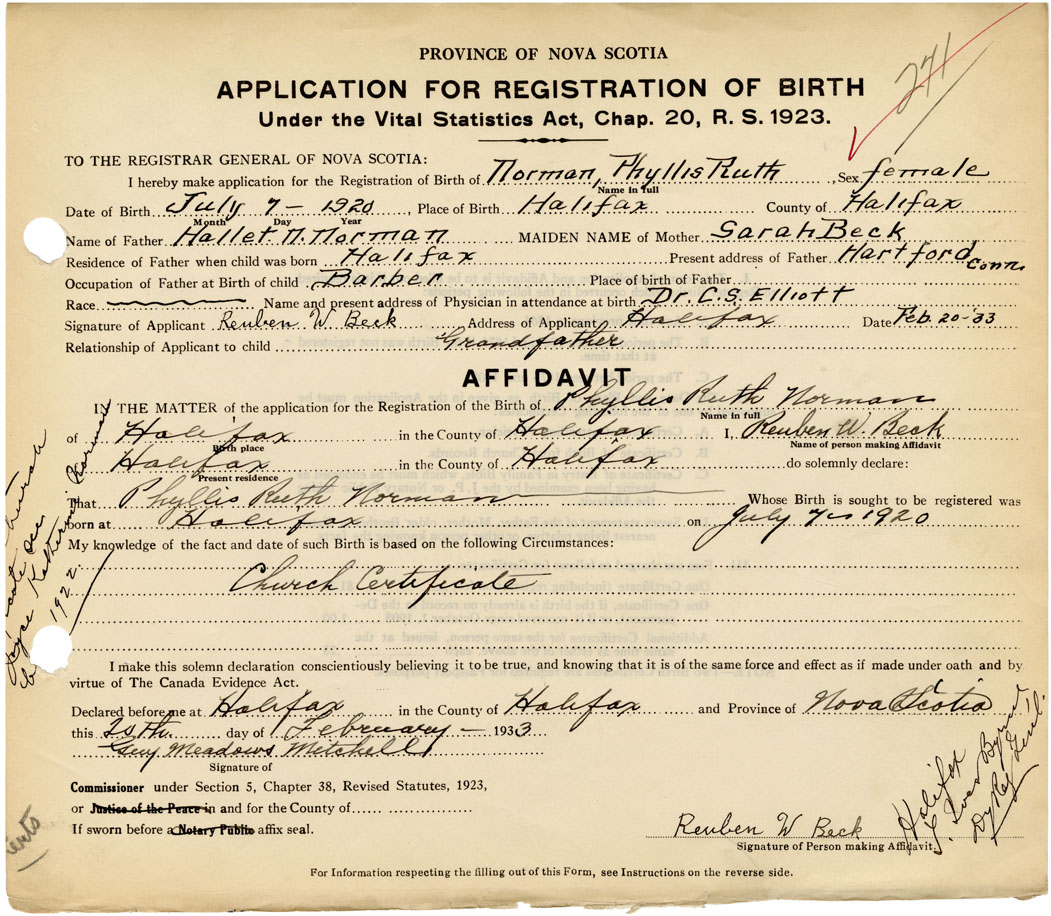 PROVINCE OF NOVA SCOTIA
241
APPLICATION FOR REGISTRATION OF BIRTH
Under the Vital Statistics Act, Chap. 20, R. S. 1923.
TO THE REGISTRAR GENERAL OF NOVA SCOTIA:
I hereby make application for the Registration of Birth of Norman, Phyllis Ruth, Sex female
Name in full
Date of Birth July 7 - 1920, Place of Birth Halifax County of Halifax
Month Day Year
Name of Father Hallet N. Norman MAIDEN NAME of Mother Sarah Beck
Residence of Father when child was born Halifax Present address of Father Hartford Conn.
Occupation of Father at Birth of child Barber Place of birth of Father
Race Name and present address of Physician in attendance at birth Dr. C. S. Elliott
Signature of Applicant Reuben W Beck Address of Applicant Halifax Date Feb. 20-'33
Relationship of Applicant to child Grandfather
AFFIDAVIT
IN THE MATTER of the application for the Registration of the Birth of Phyllis Ruth Norman
Name in full
of Halifax in the County of Halifax I, Reuben W. Beck
Birth place Name of person making Affidavit
Halifax in the County of Halifax do solemnly declare:
Present residence
That Phyllis Ruth Norman Whose Birth is sought to be registered was
born at Halifax on July 7 1920
My knowledge of the fact and date of such Birth is based on the following Circumstances:
Church Certificate
I make this solemn declaration conscientiously believing it to be true, and knowing that it is of the same force and effect as if made under oath and by
virtue of The Canada Evidence Act.
Declared before me at Halifax in the County of Halifax and Province of Nova Scotia
this 20th. day of February - 1933
Guy Meadows Mitchell
Signature of
Commissioner under Section 5, Chapter 38, Revised Statutes, 1923,
or Justice of the Peace in and for the County of
If sworn before a Notary Public affix seal.
Reuben W Beck
Signature of Person making Affidavit.
For Information respecting the filling out of this Form, see Instructions on the reverse side.
church
Joyce Katherine Norman
1922
Halifax
Byrne